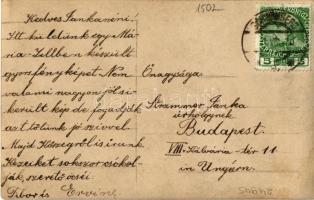 1502
Kedves Jankanéni!
Itt küldünk egy Má-
ria-Zellben készült
gyorsfényképet. Nem
valami nagyon jól si-
került kép de fogadják
azt tőlünk jó szivvel.
Majd Kőszegről is irunk.
Kezüket sokszor csókol-
ják, szerető öcséi
Tibor és Ervin.
Önagysága
Strammer Janka
urhölgynek
Budapest.
VIII. Kálvária-tér 11.
in Ungarn.
5 5